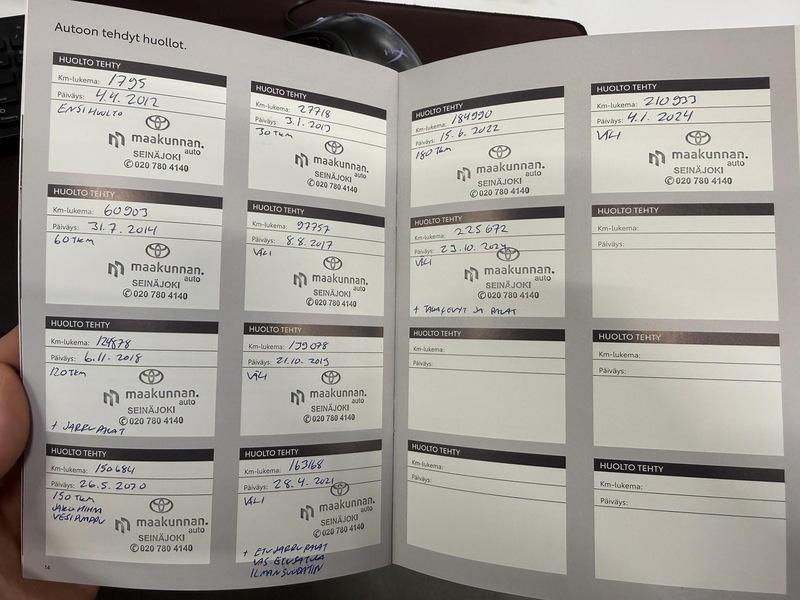 Autoon tehdyt huollot.
HUOLTO TEHTY
Km-lukema: 1795
Päiväys: 4.4. 2012
ENSIHUOLTO
maakunnan.
auto
SEINÄJOKI
✆ 020 780 4140
HUOLTO TEHTY
Km-lukema: 27718
Päiväys: 3.1. 2013
30 TKM
maakunnan.
auto
SEINÄJOKI
✆ 020 780 4140
HUOLTO TEHTY
Km-lukema: 60903
Päiväys: 31.7. 2014
60 TKM
maakunnan.
auto
SEINÄJOKI
✆ 020 780 4140
HUOLTO TEHTY
Km-lukema: 97757
Päiväys: 8.8. 2017
VÄLI
maakunnan.
auto
SEINÄJOKI
✆ 020 780 4140
HUOLTO TEHTY
Km-lukema: 124878
Päiväys: 6.11. 2018
120 TKM
maakunnan.
auto
SEINÄJOKI
✆ 020 780 4140
+ JARRUPALAT
HUOLTO TEHTY
Km-lukema: 139078
Päiväys: 21.10. 2019
VÄLI
maakunnan.
auto
SEINÄJOKI
✆ 020 780 4140
HUOLTO TEHTY
Km-lukema: 150684
Päiväys: 26.5. 2020
150 TKM
JAKOHIHNA
VESIPUMPPU
maakunnan.
auto
SEINÄJOKI
✆ 020 780 4140
HUOLTO TEHTY
Km-lukema: 163168
Päiväys: 28.4. 2021
VÄLI
maakunnan.
auto
SEINÄJOKI
✆ 020 780 4140
+ ETUJARRUPALAT
VAS
ILMANSUODATIN
14
HUOLTO TEHTY
Km-lukema: 184990
Päiväys: 15.6. 2022
180 TKM
maakunnan.
auto
SEINÄJOKI
✆ 020 780 4140
HUOLTO TEHTY
Km-lukema: 210933
Päiväys: 4.1. 2024
VÄLI
maakunnan.
auto
SEINÄJOKI
✆ 020 780 4140
HUOLTO TEHTY
Km-lukema: 225672
Päiväys: 23.10. 2024
VÄLI
maakunnan.
auto
SEINÄJOKI
✆ 020 780 4140
+ TAKALEVYT JA PALAT
HUOLTO TEHTY
Km-lukema:
Päiväys:
HUOLTO TEHTY
Km-lukema:
Päiväys:
HUOLTO TEHTY
Km-lukema:
Päiväys:
HUOLTO TEHTY
Km-lukema:
Päiväys:
HUOLTO TEHTY
Km-lukema:
Päiväys: